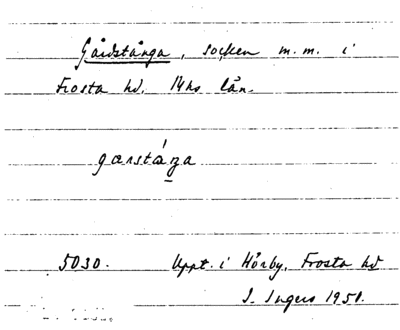 Gårdstånga, socken m.m. i
Frosta hd. Mhs län.
garstáŋa
5030. Uppt. i Hörby, Frosta hd
I. Ingers 1950.